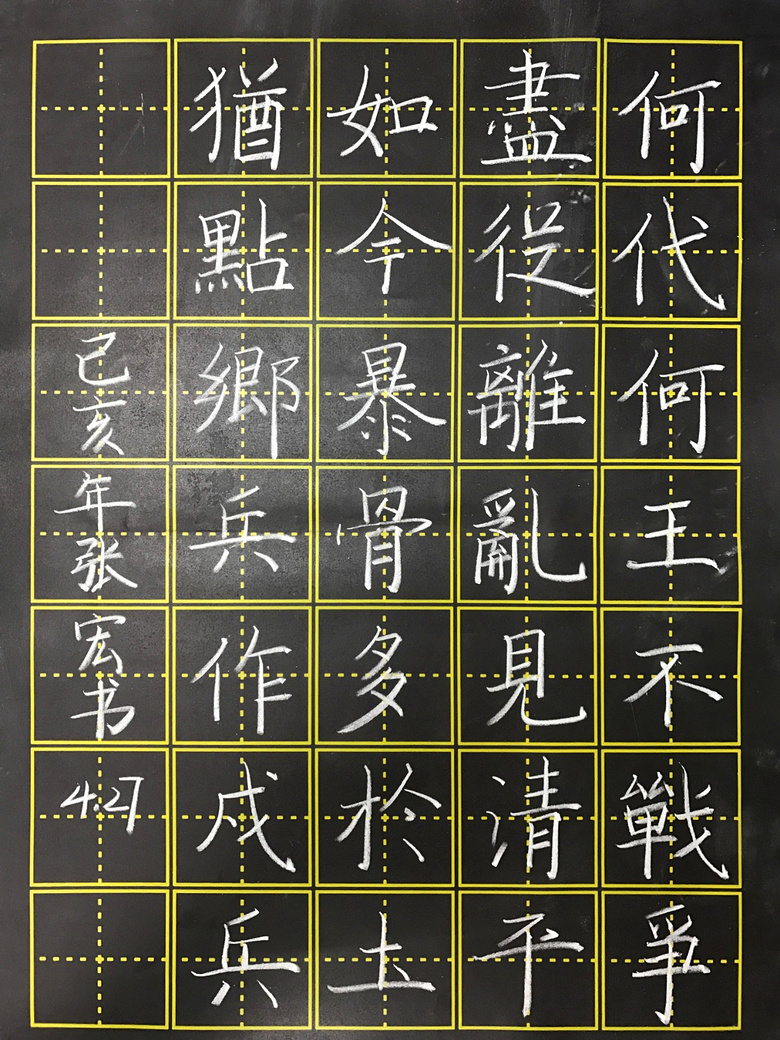 何代何王不戰爭
盡從離亂見清平
如今暴骨多於土
猶點鄉兵作戍兵
己亥年张宏书 4.27